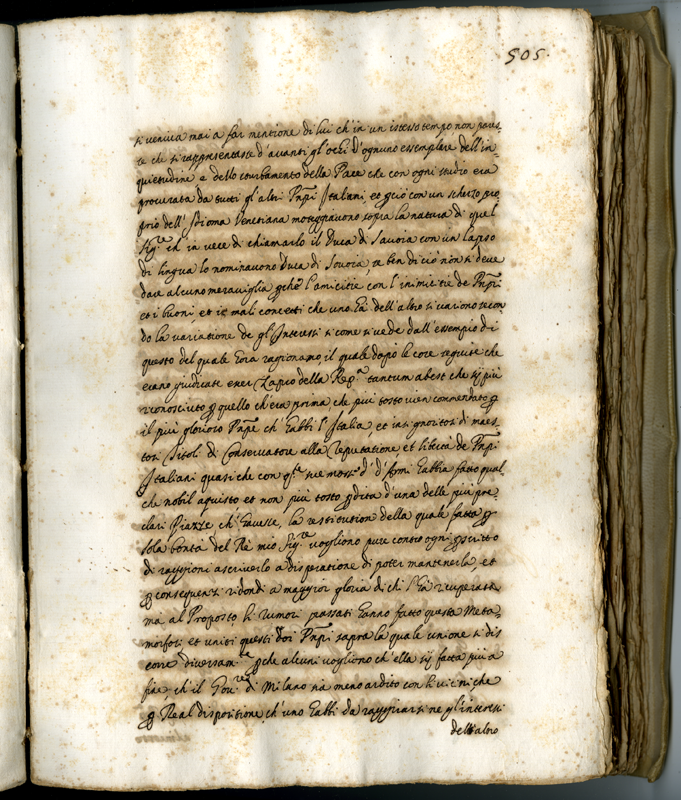 505.
si veniva mai a far mentione di lui ch'in un istesso tempo non pares=
se che si rappresentasse d'avanti gl'occhi d'ognuno essemplare dell'in=
quietudine e dello sturbamento della Pace che con ogni studio era
procurata da tutti gl'altri Prñpi Italiani et con un scherzo pro
prio dell'Idioma Venetiana motteggiavono sopra la natura di quel
Sig.re ch'in vece di chiamarlo il Duca di Savoia con un lapso
di lingua lo nominavono Duca di Sovoia, se ben di ciò non si deve
dare alcuno meraviglia l'amicitie con l'inimicitie de Prñpi
et i buoni, et i mali concetti che uno hà dell'altro si variono secon
do la variatione de gl'Interessi si come si vede dall'essempio di
questo del quale hora ragionamo il quale dapò le cose seguite che
erano giudicate esser della Rep.a tantum abest che sij più
riconosciuto quello ch'era prima che più tosto vien commendato
il più glorioso Prñpe ch'habbi l'Italia, et
titol di Conservatore alla reputatione et libertà de Prñpi
Italiani quasi che con q.sta sue d'Armi habbia fatto qual
che nobil aquisto et non più tosto perdita d'una delle più pre=
clari Piazze ch'havesse, la restitution della quale fatta
sola bontà del Rè mio Sig.re vogliono pure contro ogni
di raggioni ascriverlo a disperatione di poter mantenerla et
consequenza ridondi a maggior gloria di chi l'hà ricuperata
ma al Proposto li rumori passati hanno fatto questa Meta=
morfosi et uniti questi doi Prñpi sopra la quale unione si dis
corre diversam.te perche alcuni vogliono ch'ella sij fatta più a
fine ch'il Gov.re di Milano sia meno ardito con li vicini che
Real dispositione ch'uno habbi da raggirarsi ne gl'interessi
dell'altro